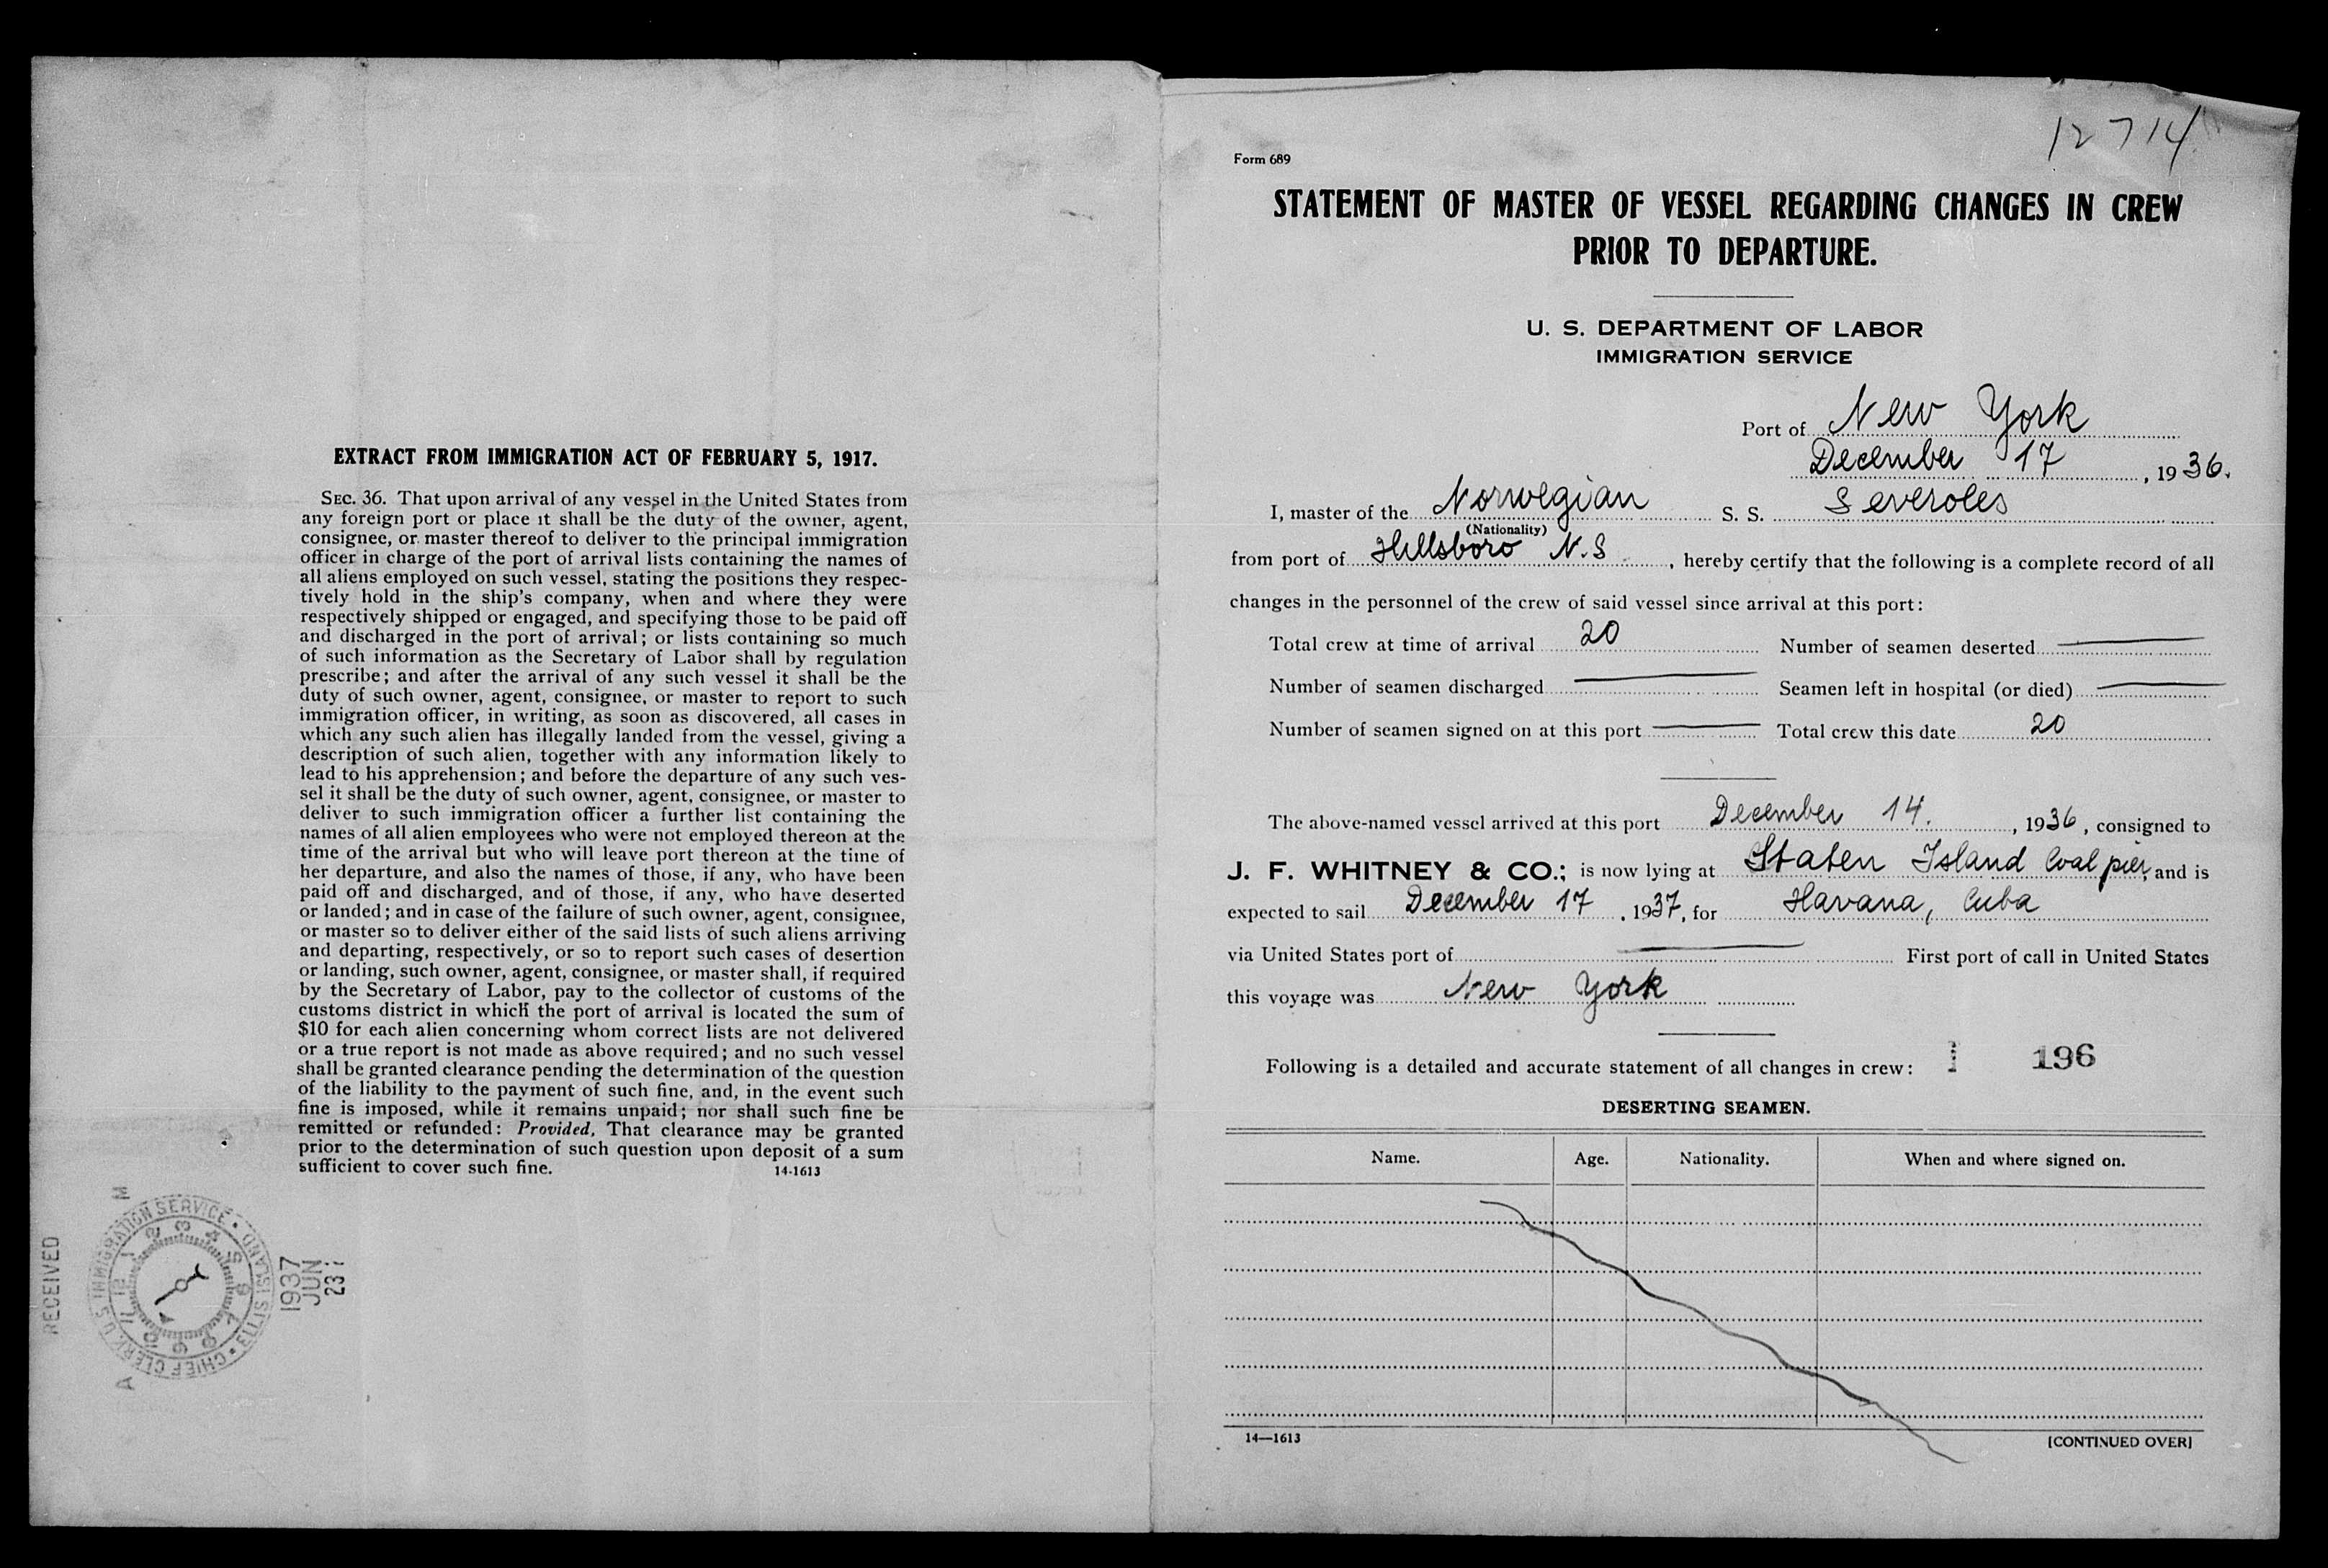 EXTRACT FROM IMMIGRATION ACT OF FEBRUARY 5, 1917.
SEC. 36. That upon arrival of any vessel in the United States from
any foreign port or place it shall be the duty of the owner, agent,
consignee, or master thereof to deliver to the principal immigration
officer in charge of the port of arrival lists containing the names of
all aliens employed on such vessel, stating the positions they respec-
tively hold in the ship's company, when and where they were
respectively shipped or engaged, and specifying those to be paid off
and discharged in the port of arrival; or lists containing so much
of such information as the Secretary of Labor shall by regulation
prescribe; and after the arrival of any such vessel it shall be the
duty of such owner, agent, consignee, or master to report to such
immigration officer, in writing, as soon as discovered, all cases in
which any such alien has illegally landed from the vessel, giving a
description of such alien, together with any information likely to
lead to his apprehension; and before the departure of any such ves-
sel it shall be the duty of such owner, agent, consignee, or master to
deliver to such immigration officer a further list containing the
names of all alien employees who were not employed thereon at the
time of the arrival but who will leave port thereon at the time of
her departure, and also the names of those, if any, who have been
paid off and discharged, and of those, if any, who have deserted
or landed; and in case of the failure of such owner, agent, consignee,
or master so to deliver either of the said lists of such aliens arriving
and departing, respectively, or so to report such cases of desertion
or landing, such owner, agent, consignee, or master shall, if required
by the Secretary of Labor, pay to the collector of customs of the
customs district in which the port of arrival is located the sum of
$10 for each alien concerning whom correct lists are not delivered
or a true report is not made as above required; and no such vessel
shall be granted clearance pending the determination of the question
of the liability to the payment of such fine, and, in the event such
fine is imposed, while it remains unpaid; nor shall such fine be
remitted or refunded: Provided, That clearance may be granted
prior to the determination of such question upon deposit of a sum
sufficient to cover such fine. 14-1613
RECEIVED
A M
CHIEF CLERK, U.S. IMMIGRATION SERVICE • ELLIS ISLAND •
12 1 2 3 4 5 6 7 8 9 10 11
1937
JUN
23
12714
Form 689
STATEMENT OF MASTER OF VESSEL REGARDING CHANGES IN CREW
PRIOR TO DEPARTURE.
U. S. DEPARTMENT OF LABOR
IMMIGRATION SERVICE
Port of New York
December 17, 1936.
I, master of the Norwegian S. S. Severoles
(Nationality)
from port of Hillsboro N.S, hereby certify that the following is a complete record of all
changes in the personnel of the crew of said vessel since arrival at this port:
Total crew at time of arrival 20 Number of seamen deserted
Number of seamen discharged Seamen left in hospital (or died)
Number of seamen signed on at this port Total crew this date 20
The above-named vessel arrived at this port December 14., 1936, consigned to
J. F. WHITNEY & CO.; is now lying at Staten Island Coal pier, and is
expected to sail December 17, 1937, for Havana, Cuba
via United States port of First port of call in United States
this voyage was New York
Following is a detailed and accurate statement of all changes in crew: 196
DESERTING SEAMEN.
Name. Age. Nationality. When and where signed on.
14—1613 [CONTINUED OVER]